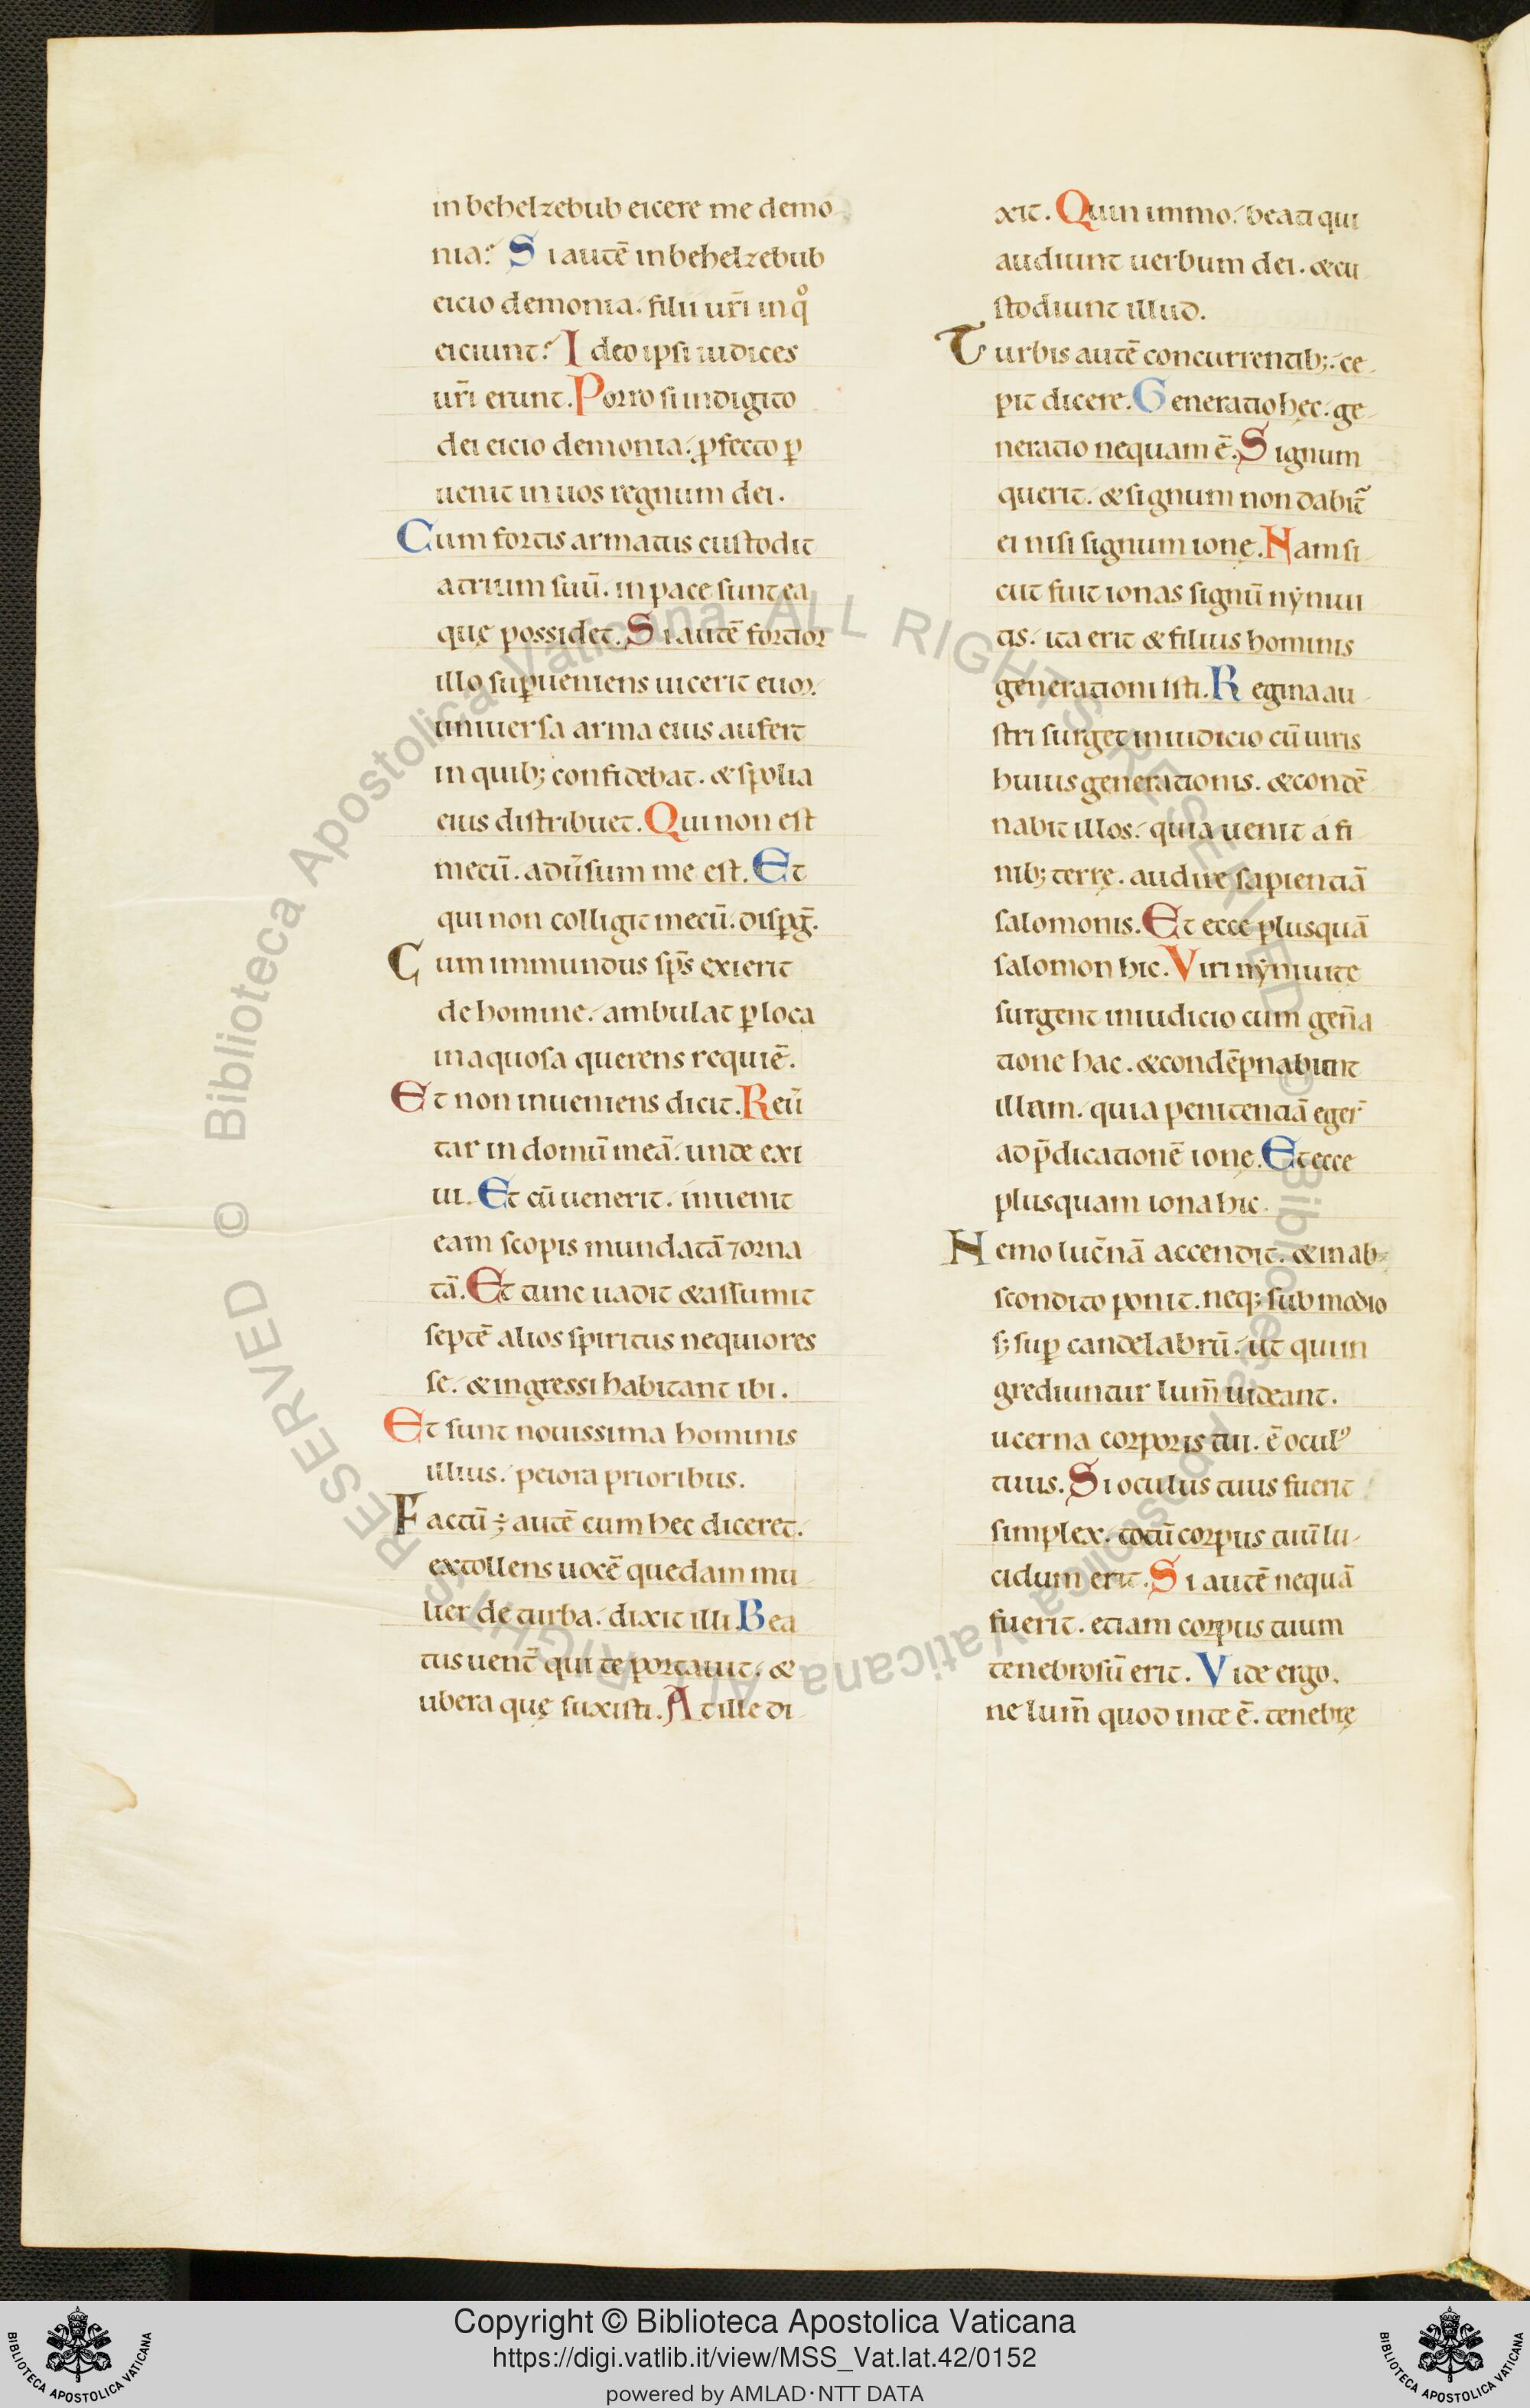 in behelzebub eicere me demo
nia? Si autē in behelzebub
eicio demonia. filii ur̄i in qͦ
eiciunt? Ideo ipsi iudices
ur̄i erunt. Porro si in digito
dei eicio demonia. ꝓfecto ꝑ
uenit in uos regnum dei.
Cum fortis armatus custodit
atrium suū. in pace sunt ea
quę possidet. Si autē fortior
illo suꝑueniens uicerit euꝫ.
uniuersa arma eius aufert
in quib; confidebat. & spolia
eius distribuet. Qui non est
mecū. adūsum me est. Et
qui non colligit mecū. dispꝑḡ.
Cum immundus sp̄s exierit
de homine. ambulat ꝑ loca
inaquosa querens requiē.
Et non inueniens dicit. Reū
tar in domū meā. unde exi
ui. Et cū uenerit. inuenit
eam scopis mundatā ⁊ orna
tā. Et tunc uadit & assumit
septē alios spiritus nequiores
se. & ingressi habitant ibi.
Et sunt nouissima hominis
illius. peiora prioribus.
Factū ÷ autē cum hec diceret.
extollens uocē quedam mu
lier de turba. dixit illi. Bea
tus uent̄ qui te portauit. &
ubera quę suxisti. At ille di
xit. Quin immo. beati qui
audiunt uerbum dei. & cu
stodiunt illud.
Turbis autē concurrentib;. ce
pit dicere. Generatio hęc. ge
neratio nequam ē. Signum
querit. & signum non dabit᷑
ei nisi signum ionę. Nam si
cut fuit ionas signū nyniui
tis. ita erit & filius hominis
generationi isti. Regina au
stri surget in iudicio cū uiris
huius generationis. & condē
nabit illos. quia uenit a fi
nib; terrę. audire sapientiā
salomonis. Et ecce plusquā
salomon hic. Viri nyniuite
surgent in iudicio cum gen̄a
tione hac. & condēpnabunt
illam. quia penitentiā eger̄
ad p̄dicationē ionę. Et ecce
plusquam iona hic.
Nemo luc̄nā accendit. & in ab
scondito ponit. neq; sub modio
s; suꝑ candelabrū. ut qui in
grediuntur lum̄ uideant.
ucerna corporis tui. ē ocul᾽
tuus. Si oculus tuus fuerit
simplex. totū corpus tuū lu
cidum erit. Si autē nequā
fuerit. etiam corpus tuum
tenebrosū erit. Vide ergo.
ne lum̄ quod in te ē. tenebrę
© Biblioteca Apostolica Vaticana ALL RIGHTS RESERVED © Biblioteca Apostolica Vaticana ALL RIGHTS RESERVED
Copyright © Biblioteca Apostolica Vaticana
https://digi.vatlib.it/view/MSS_Vat.lat.42/0152
powered by AMLAD·NTT DATA
BIBLIOTECA APOSTOLICA VATICANA
BIBLIOTECA APOSTOLICA VATICANA